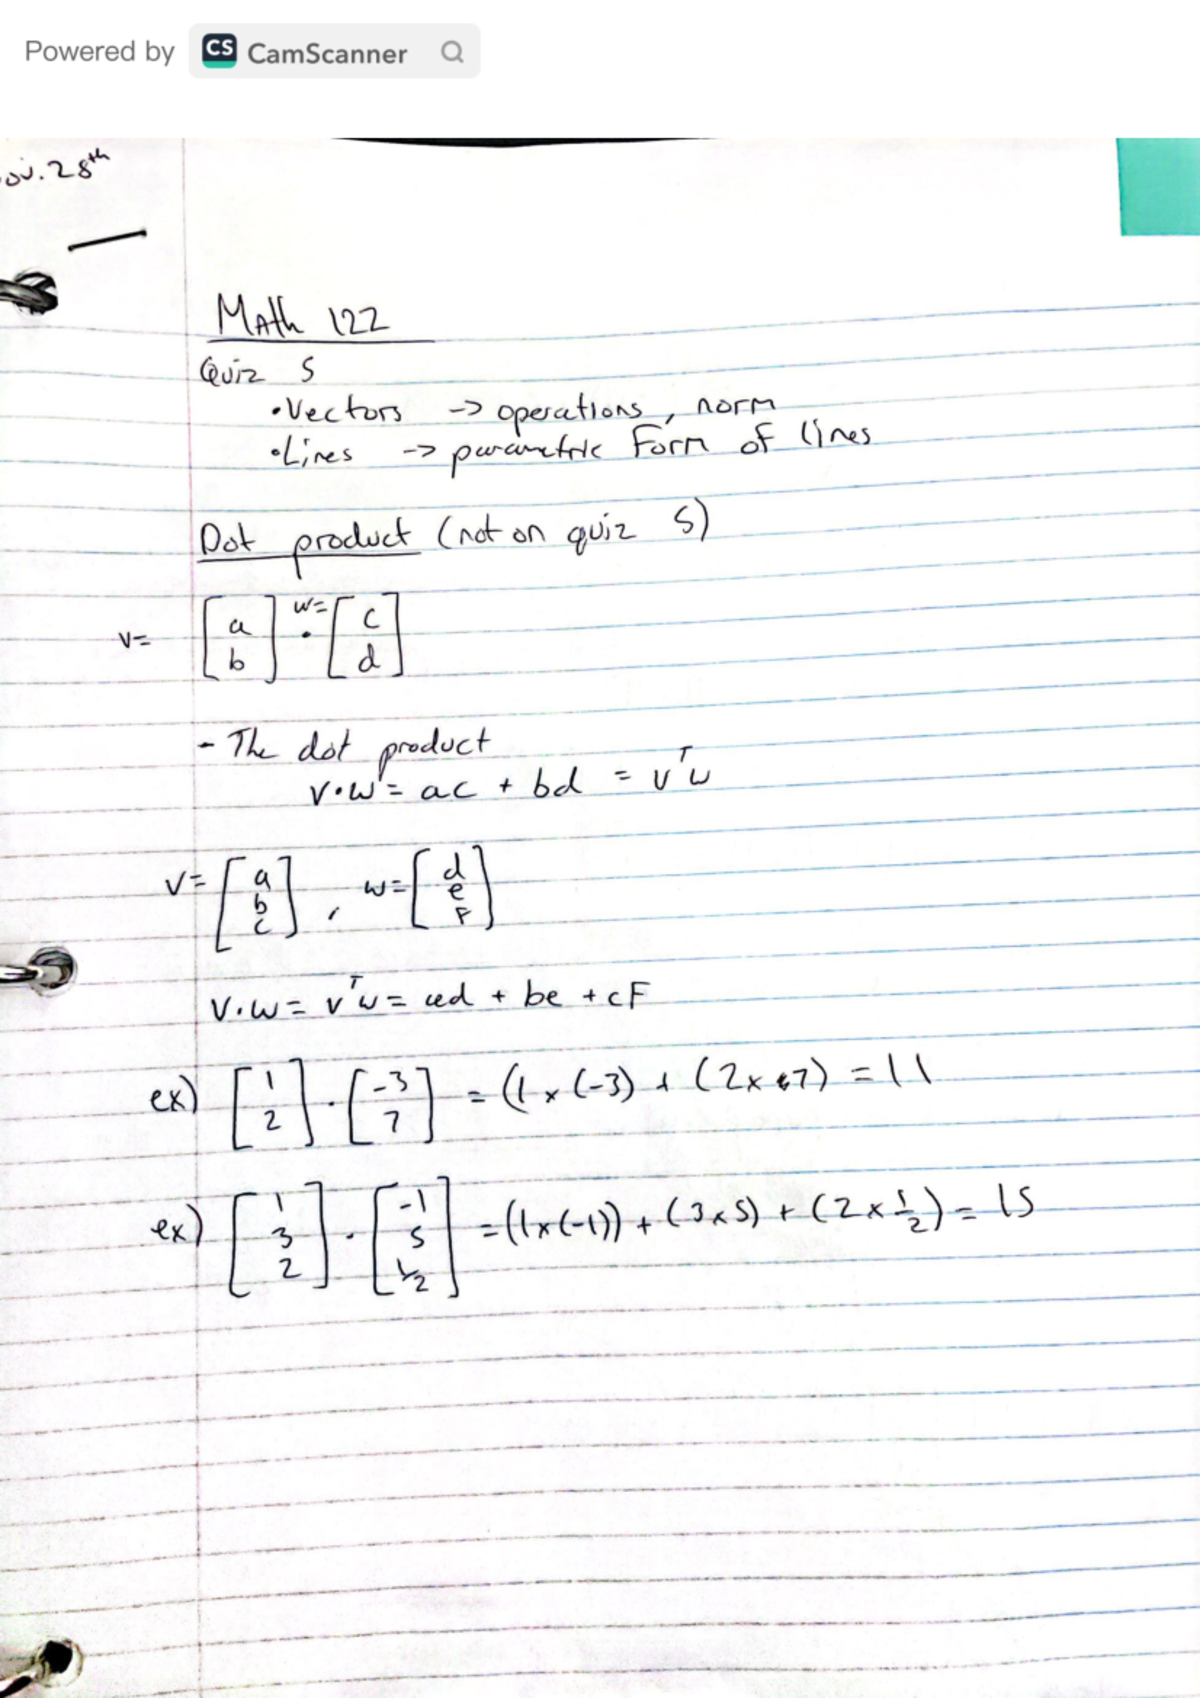 Powered by CS CamScanner
ov. 28th
Math 122
Quiz 5
• Vectors -> operations, norm
• Lines -> parametric Form of lines
Dot product (not on quiz 5)
v= [a b] · w= [c d]
- The dot product
v·w = ac + bd = vᵀw
v= [a b c], w= [d e F]
v·w = vᵀw = ad + be + cF
ex) [1 2] · [-3 7] = (1 x (-3) + (2 x 7) = 11
ex) [1 3 2] · [-1 5 1/2] = (1x(-1)) + (3x5) + (2x1/2) = 15